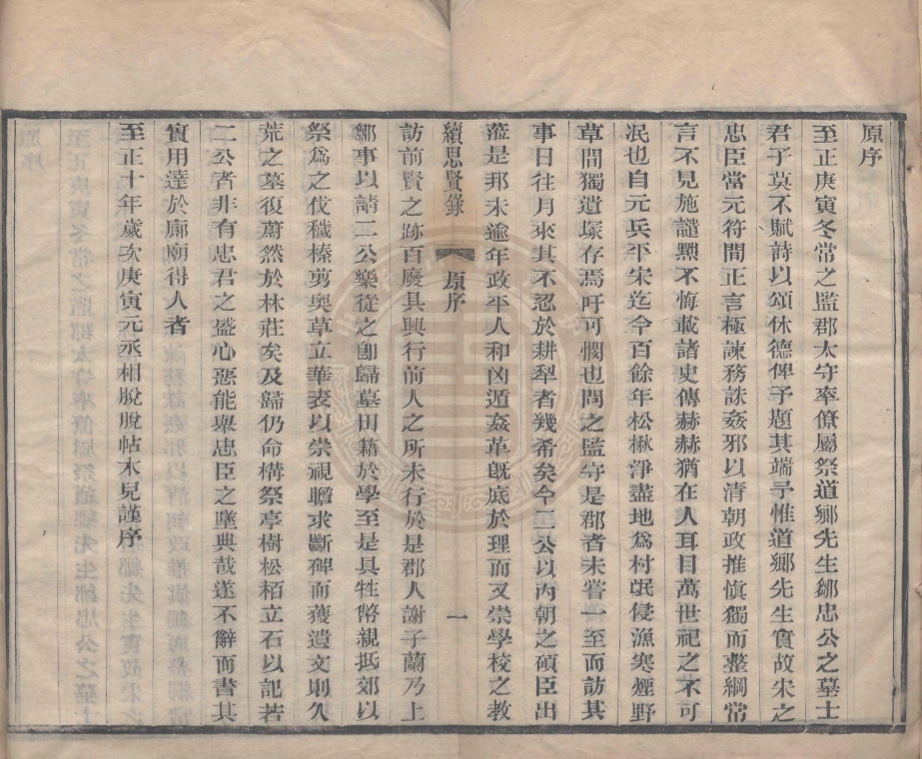 原序
至正庚寅冬常之監郡太守率僚屬祭道鄉先生鄒忠公之墓士
君子莫不賦詩以頌休德俾予題其端予惟道鄉先生實故宋之
忠臣當元符間正言極諫務誅姦邪以清朝政推愼獨而整綱常
言不見施謹黙不悔載諸史傳赫赫猶在人耳目萬世祀之不可
泯也自元兵平宋迄今百餘年松楸淨盡地爲村氓侵漁寒煙野
草間獨遺塚存焉吁可憫也問之監守是郡者未嘗一至而訪其
事日往月來其不忍於耕犁者幾希矣今二公以內朝之碩臣出
蒞是邦未逾年政平人和凶遁姦革旣底於理而又崇學校之教
續思賢錄 原序 一
訪前賢之跡百廢具興行前人之所未行於是郡人謝子蘭乃上
鄒事以請二公樂從之卽歸墓田籍於學至是具牲幣親抵郊以
祭爲之伐穢榛剪奥草立華表以崇視瞻求斷碑而獲遺文則久
荒之墓復蔚然於林莊矣及歸仍命構祭亭樹松栢立石以記若
二公者非有忠君之盛心惡能舉忠臣之墜典哉遂不辭而書其
實用達於廊廟得人者
至正十年歲次庚寅元丞相脫脫帖木兒謹序